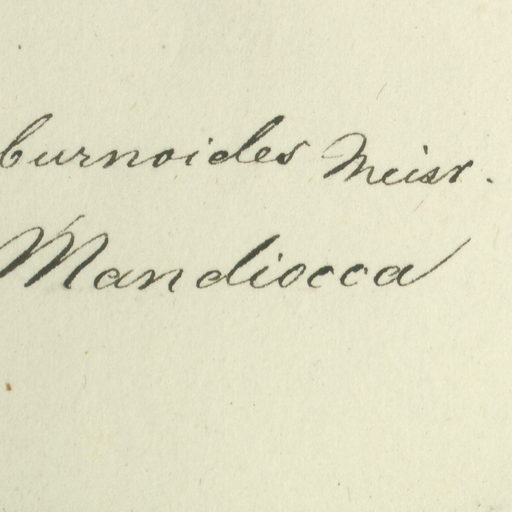 burnoides Meisr.
Mandiocca